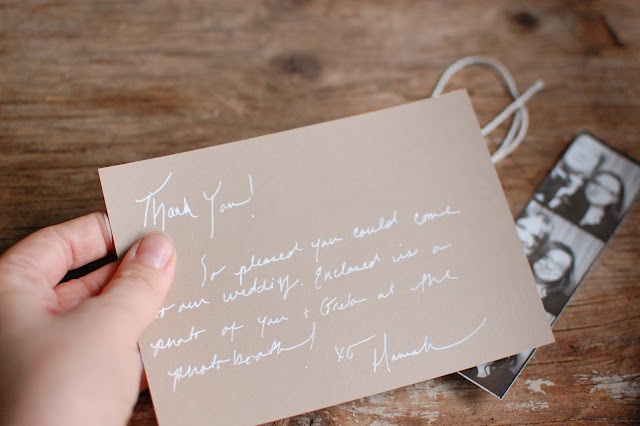 Thank You!
So pleased you could come
to our wedding. Enclosed is a
photo of you + Greta at the
photobooth! xo Hannah